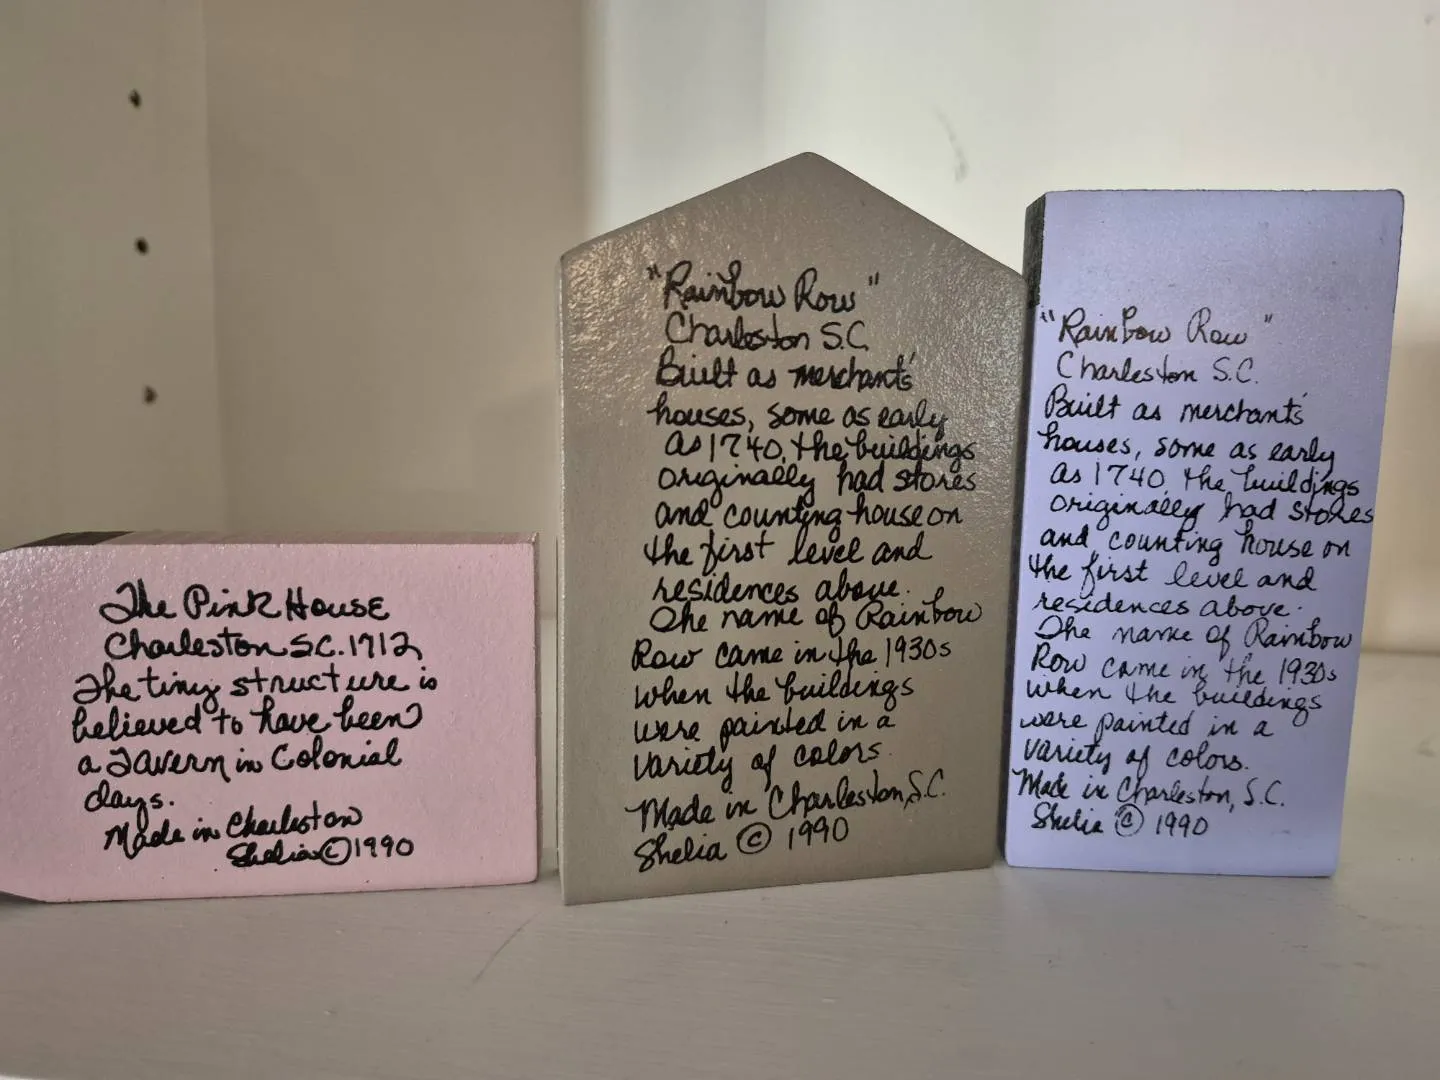 The Pink House
Charleston S.C. 1712
The tiny structure is
believed to have been
a Tavern in Colonial
days.
Made in Charleston
Shelia © 1990
"Rainbow Row"
Charleston S.C.
Built as merchant's
houses, some as early
as 1740, the buildings
originally had stores
and counting house on
the first level and
residences above.
The name of Rainbow
Row came in the 1930s
when the buildings
were painted in a
variety of colors.
Made in Charleston, S.C.
Shelia © 1990
"Rainbow Row"
Charleston S.C.
Built as merchant's
houses, some as early
as 1740 the buildings
originally had stores
and counting house on
the first level and
residences above.
The name of Rainbow
Row came in the 1930s
when the buildings
were painted in a
variety of colors.
Made in Charleston, S.C.
Shelia © 1990